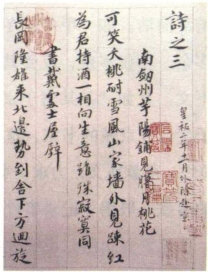 詩之三
皇祐二年十一月外除赴京
南劒州芋陽鋪見臘月桃花
可笑夭桃耐雪風山家墻外見疎紅
為君持酒一相向生意雖殊寂寞同
書戴處士屋壁
長岡隆雄來北邊勢到舍下方迴旋